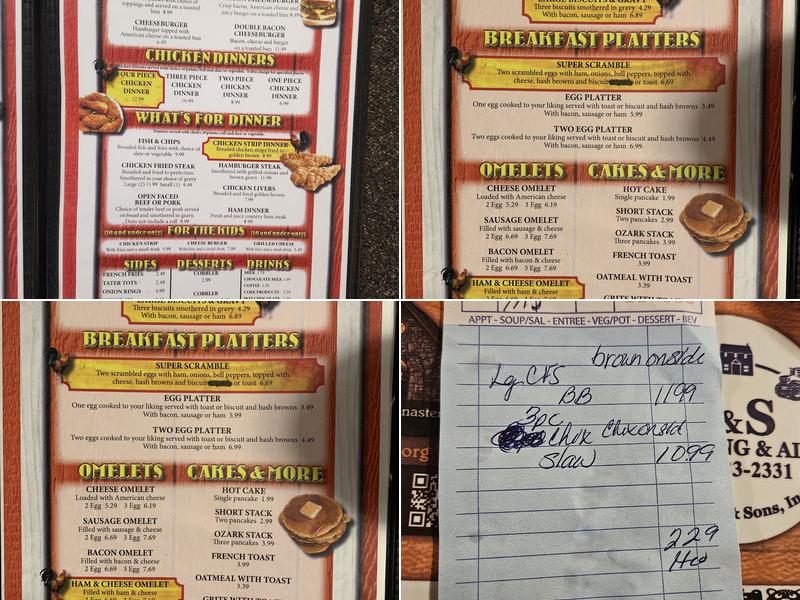 toppings and served on a toasted
bun 8.99
CHEESEBURGER
Hamburger topped with
American cheese on a toasted bun
6.49
Crisp bacon, American cheese and
juicy burger on a toasted bun 8.49
DOUBLE BACON
CHEESEBURGER
Bacon, cheese and burger
on a toasted bun 11.49
CHICKEN DINNERS
FOUR PIECE
CHICKEN
DINNER
12.99
THREE PIECE
CHICKEN
DINNER
10.99
TWO PIECE
CHICKEN
DINNER
8.99
ONE PIECE
CHICKEN
DINNER
6.99
WHAT'S FOR DINNER
Dinners served with choice of potato, roll and slaw or vegetable.
FISH & CHIPS
Breaded fish and fries with choice of
slaw or vegetable 9.99
CHICKEN FRIED STEAK
Breaded and fried to perfection.
Smothered in your choice of gravy
Large (2) 11.99 Small (1) 9.49
OPEN FACED
BEEF OR PORK
Choice of tender beef or pork served
on bread and smothered in gravy.
Does not include a roll 9.99
CHICKEN STRIP DINNER
Breaded chicken strips fried to
golden brown 8.99
HAMBURGER STEAK
Smothered with grilled onions and
brown gravy 11.99
CHICKEN LIVERS
Breaded and fried golden brown
7.99
HAM DINNER
Fresh and juicy country ham steak
8.99
(10 and under only) FOR THE KIDS (10 and under only)
CHICKEN STRIP
With fries and a small drink 5.99
CHEESE BURGER
With fries and a small drink 7.99
GRILLED CHEESE
With fries and a small drink 5.49
SIDES
FRENCH FRIES 2.49
TATER TOTS 2.49
ONION RINGS 4.99
DESSERTS
COBBLER
2.99
COBBLER
DRINKS
MILK
CHOCOLATE MILK
COFFEE
COKE PRODUCTS
HOT CHOCOLATE
LARGE BISCUITS & GRAVY
Three biscuits smothered in gravy 4.29
With bacon, sausage or ham 6.89
BREAKFAST PLATTERS
SUPER SCRAMBLE
Two scrambled eggs with ham, onions, bell peppers, topped with
cheese, hash browns and biscuit or toast 6.69
EGG PLATTER
One egg cooked to your liking served with toast or biscuit and hash browns 3.49
With bacon, sausage or ham 5.99
TWO EGG PLATTER
Two eggs cooked to your liking served with toast or biscuit and hash browns 4.69
With bacon, sausage or ham 6.99
OMELETS
CHEESE OMELET
Loaded with American cheese
2 Egg 5.29 3 Egg 6.19
SAUSAGE OMELET
Filled with sausage & cheese
2 Egg 6.69 3 Egg 7.69
BACON OMELET
Filled with bacon & cheese
2 Egg 6.69 3 Egg 7.69
HAM & CHEESE OMELET
Filled with ham & cheese
CAKES & MORE
HOT CAKE
Single pancake 1.99
SHORT STACK
Two pancakes 2.99
OZARK STACK
Three pancakes 3.99
FRENCH TOAST
3.99
OATMEAL WITH TOAST
3.39
GRITS WITH TOAST
LARGE BISCUITS & GRAVY
Three biscuits smothered in gravy 4.29
With bacon, sausage or ham 6.89
BREAKFAST PLATTERS
SUPER SCRAMBLE
Two scrambled eggs with ham, onions, bell peppers, topped with
cheese, hash browns and biscuit or toast 6.69
EGG PLATTER
One egg cooked to your liking served with toast or biscuit and hash browns 3.49
With bacon, sausage or ham 5.99
TWO EGG PLATTER
Two eggs cooked to your liking served with toast or biscuit and hash browns 4.69
With bacon, sausage or ham 6.99
OMELETS
CHEESE OMELET
Loaded with American cheese
2 Egg 5.29 3 Egg 6.19
SAUSAGE OMELET
Filled with sausage & cheese
2 Egg 6.69 3 Egg 7.69
BACON OMELET
Filled with bacon & cheese
2 Egg 6.69 3 Egg 7.69
HAM & CHEESE OMELET
Filled with ham & cheese
CAKES & MORE
HOT CAKE
Single pancake 1.99
SHORT STACK
Two pancakes 2.99
OZARK STACK
Three pancakes 3.99
FRENCH TOAST
3.99
OATMEAL WITH TOAST
3.39
APPT - SOUP/SAL - ENTREE - VEG/POT - DESSERT - BEV
brown onside
Lg CFS
BB 1199
3pc
slaw 1099
229
H20
&S
NG & AI
3-2331
& Sons, Inc
.org